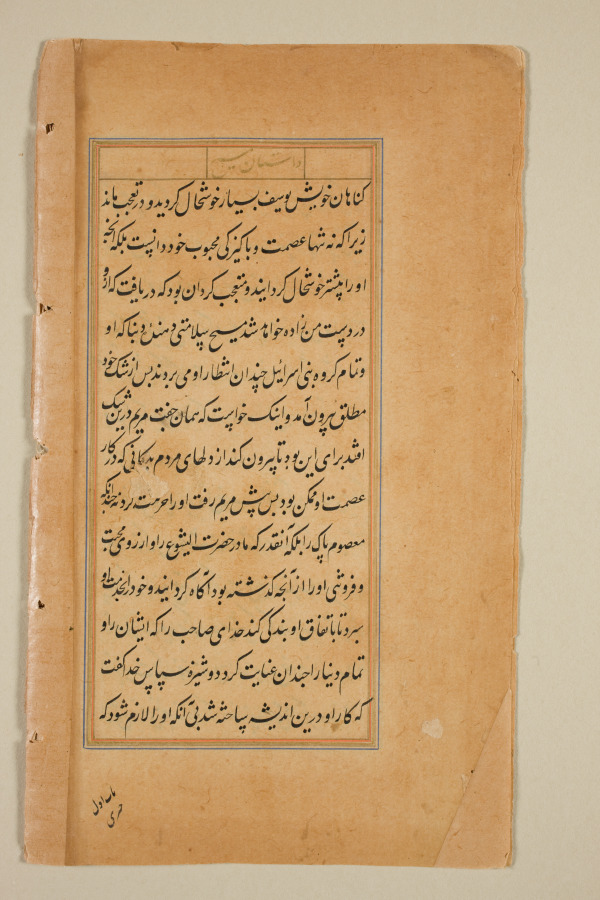 داستان مسیح
کناهان خویش یوسف بسیار خوشحال کردید و در تعجب ماند
زیرا که نه تنها عصمت و پاکیزکی محبوب خود دانست بلکه آنچه
او را بیشتر خوشحال کردانید و متعجب کردان بود که دریافت که از و
در دست من زاده خواهد شد مسیح سلامتی دهنده دنیا که او
و تمام کروه بنی اسرائیل چندان انتظار او می بردند بس از شک خود
مطلق بیرون آمد و اینک خواست که همان جفت مریم درین شک
افتد برای این بود تا بیرون کند از دلهای مردم بد کمانی که در کار
عصمت او ممکن بود بس پیش مریم رفت او را حرمت برد نه چندانکه
معصوم پاک را بلکه آنقدر که مادر حضرت الیشوع را و از روی محبت
و فروتنی او را از آنجه کذشته بود آکاه کردانید و خود را بخدمت او
سبرد تا باتفاق او بندکی کند خدای صاحب را که ایشان را و
تمام دنیا را چندان عنایت کرد دوشیزه سپاس خدا کفت
که کار او درین اندیشه ساخته شد بی آنکه او را لازم شود که
باب اول